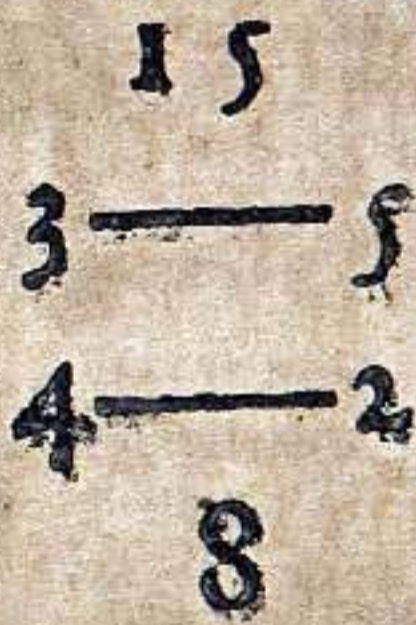 15
3 — 5
4 — 2
8